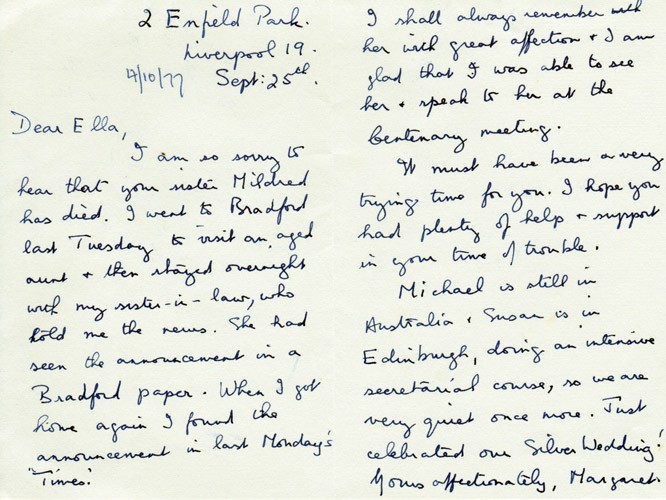 2 Enfield Park.
Liverpool 19.
4/10/77 Sept: 25th.
Dear Ella,
I am so sorry to
hear that your sister Mildred
has died. I went to Bradford
last Tuesday to visit an aged
aunt & then stayed overnight
with my sister-in-law, who
told me the news. She had
seen the announcement in a
Bradford paper. When I got
home again I found the
announcement in last Monday's
'Times'.
I shall always remember with
her with great affection & I am
glad that I was able to see
her & speak to her at the
Centenary meeting.
It must have been a very
trying time for you. I hope you
had plenty of help & support
in your time of trouble.
Michael is still in
Australia & Susan is in
Edinburgh, doing an intensive
secretarial course, so we are
very quiet once more. Just
celebrated our Silver Wedding!
Yours affectionately, Margaret.